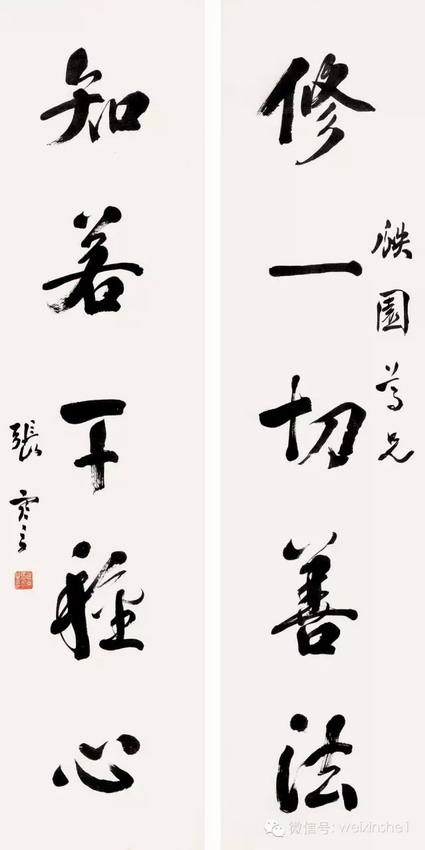 修一切善法
鉄園尊兄
知若干種心
張寒
微信号: weixinshe1